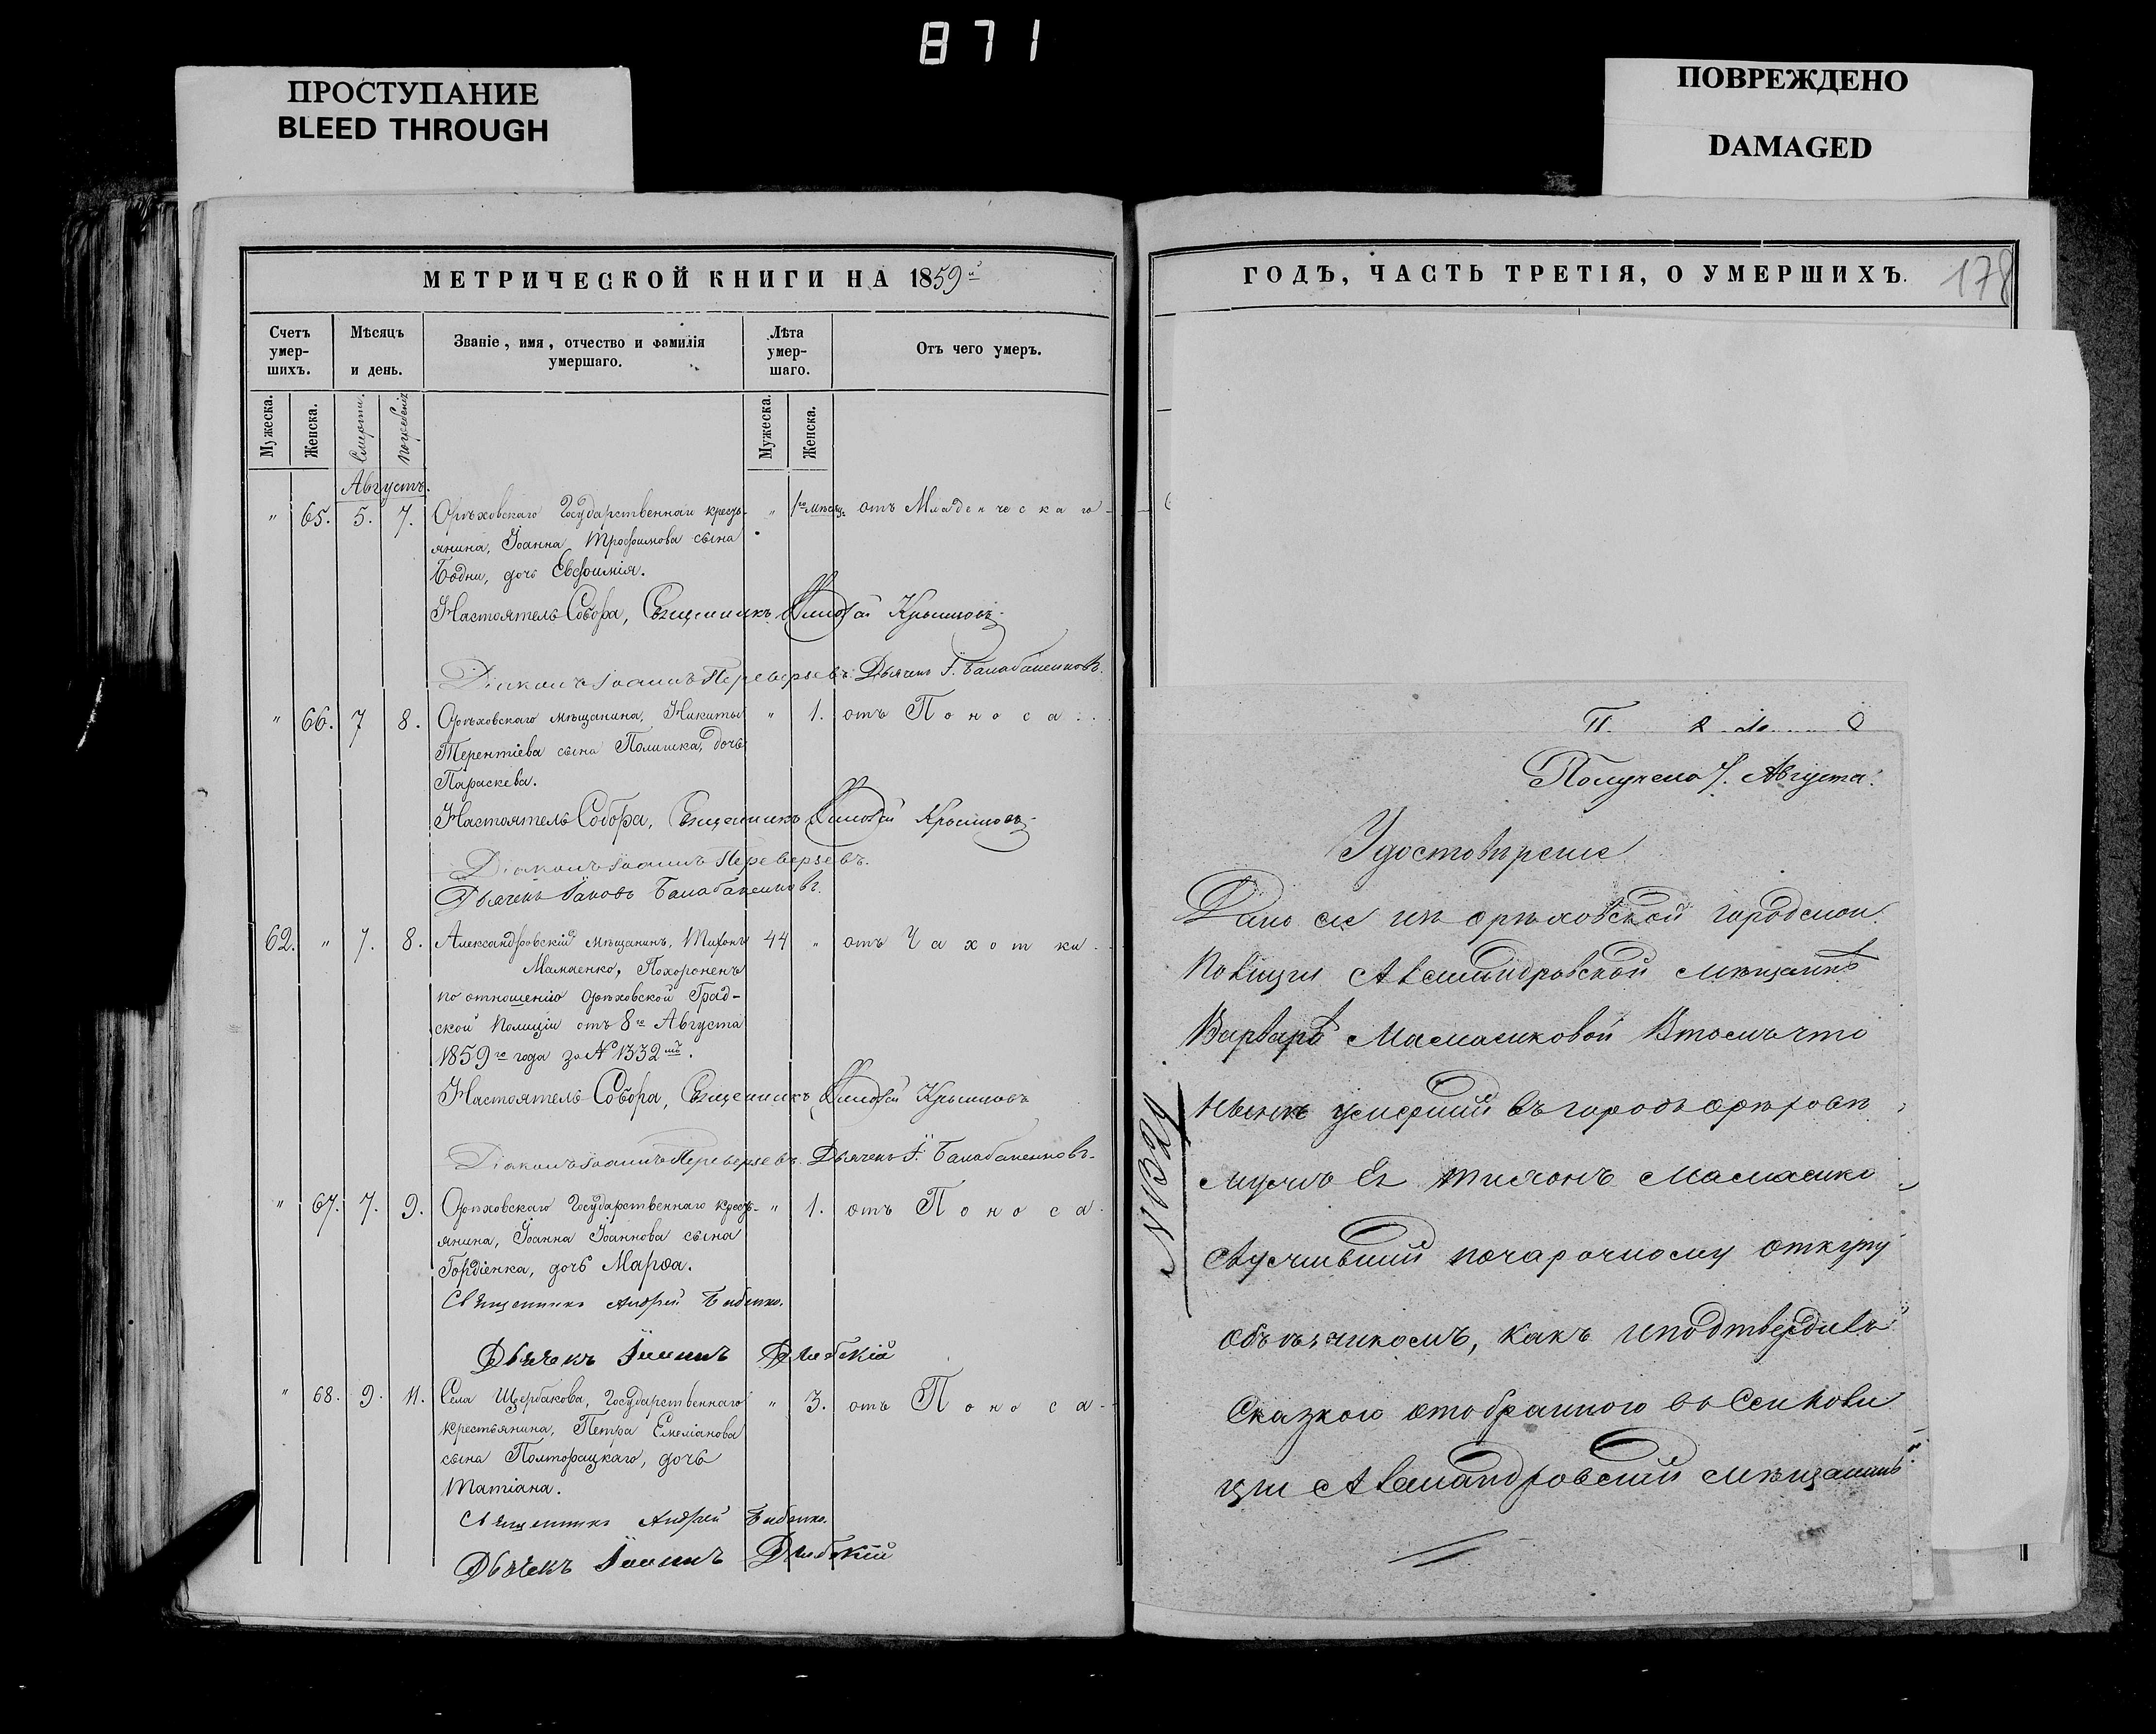 871
ПРОСТУПАНИЕ
BLEED THROUGH
ПОВРЕЖДЕНО
DAMAGED
МЕТРИЧЕСКОЙ КНИГИ НА 1859й
Счетъ умер-шихъ.
Мѣсяцъ и день.
Званіе, имя, отчество и фамилія умершаго.
Лѣта умер-шаго.
Отъ чего умеръ.
Мужеска.
Женска.
Смерти.
Погребенія
Мужеска.
Женска.
Августъ.
" 65. 5. 7. Орѣховскаго Государственнаго кресть- " 1го мѣсяц. отъ Младенческаго
янина, Іоанна Трофимова сына
Бодни, дочь Евфимія.
Настоятель Собора, Священникъ Крыжовъ
Діаконъ Іоаннъ Переверзевъ. Дьячекъ І. Балабаненковъ.
" 66. 7 8. Орѣховскаго мѣщанина, Никиты " 1. отъ Поноса
Терентіева сына Полишка, дочь
Параскева.
Настоятель Собора, Священникъ
Діаконъ Іоаннъ Переверзевъ.
Дьячекъ Іаковъ Балабаненковъ.
62. " 7. 8. Александровскій мѣщанинъ, Тихонъ 44 " отъ Чахотки
Мамаенко, Похороненъ
по отношенію Орѣховской Град-
ской Полиціи отъ 8го Августа
1859го года за № 1332мъ.
Настоятель Собора, Священникъ
Діаконъ Іоаннъ Переверзевъ. Дьячекъ І. Балабаненковъ.
" 67. 7. 9. Орѣховскаго Государственнаго кресть- " 1. отъ Поноса
янина, Іоанна Іоаннова сына
Гордіенка, дочь Марѳа.
Священникъ Андрей Бабенко.
Дьячекъ Іоаннъ
" 68. 9. 11. Села Щербакова, Государственнаго " 3. отъ Поноса
крестьянина, Петра Емеліанова
сына Полторацкаго, дочь
Татіана.
Священникъ Андрей Бабенко.
Дьячекъ Іоаннъ
ГОДЪ, ЧАСТЬ ТРЕТІЯ, О УМЕРШИХЪ.
178
Получено 7. Августа.
Удостовѣреніе
Дано сіе изъ орѣховской городской
Полиціи Александровской мѣщанкѣ
Варварѣ Мамаенковой Втомъ что
нынѣ умершій въ городѣ орѣховѣ
мужъ Ее Тихонъ Мамаенко
Служившій почарочному откупу
объѣзчикомъ, какъ и подтвердилъ
Сказкою отобранною въ сей Поли
ціи Александровскій мѣщанинъ